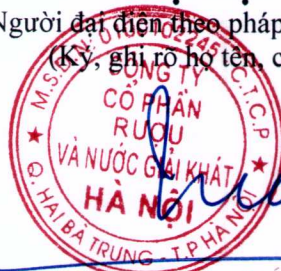 Người đại diện theo pháp
(Ký, ghi rõ họ tên, c
CÔNG TY
CỔ PHẦN
RƯỢU
VÀ NƯỚC GIẢI KHÁT
HÀ NỘI
Q. HAI BÀ TRƯNG - T.P HÀ NỘI